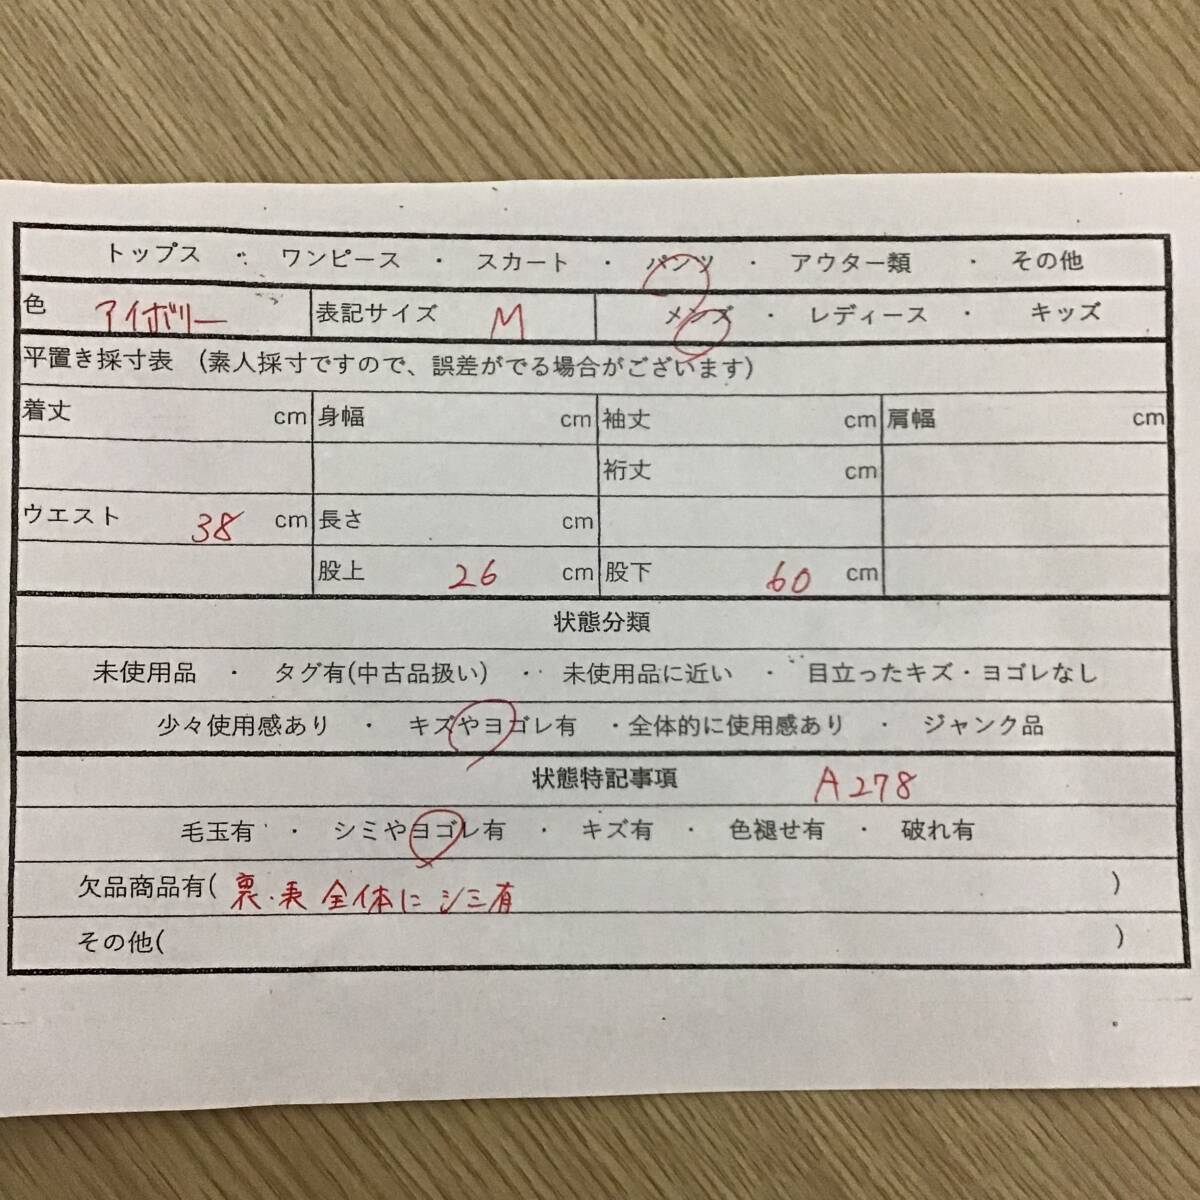 トップス ・ ワンピース ・ スカート ・ パンツ ・ アウター類 ・ その他
色 アイボリー 表記サイズ M メンズ ・ レディース ・ キッズ
平置き採寸表 (素人採寸ですので、誤差がでる場合がございます)
着丈 cm 身幅 cm 袖丈 cm 肩幅 cm
裄丈 cm
ウエスト 38 cm 長さ cm
股上 26 cm 股下 60 cm
状態分類
未使用品 ・ タグ有(中古品扱い) ・ 未使用品に近い ・ 目立ったキズ・ヨゴレなし
少々使用感あり ・ キズやヨゴレ有 ・全体的に使用感あり ・ ジャンク品
状態特記事項 A278
毛玉有 ・ シミやヨゴレ有 ・ キズ有 ・ 色褪せ有 ・ 破れ有
欠品商品有( 裏・表 全体に シミ有 )
その他( )